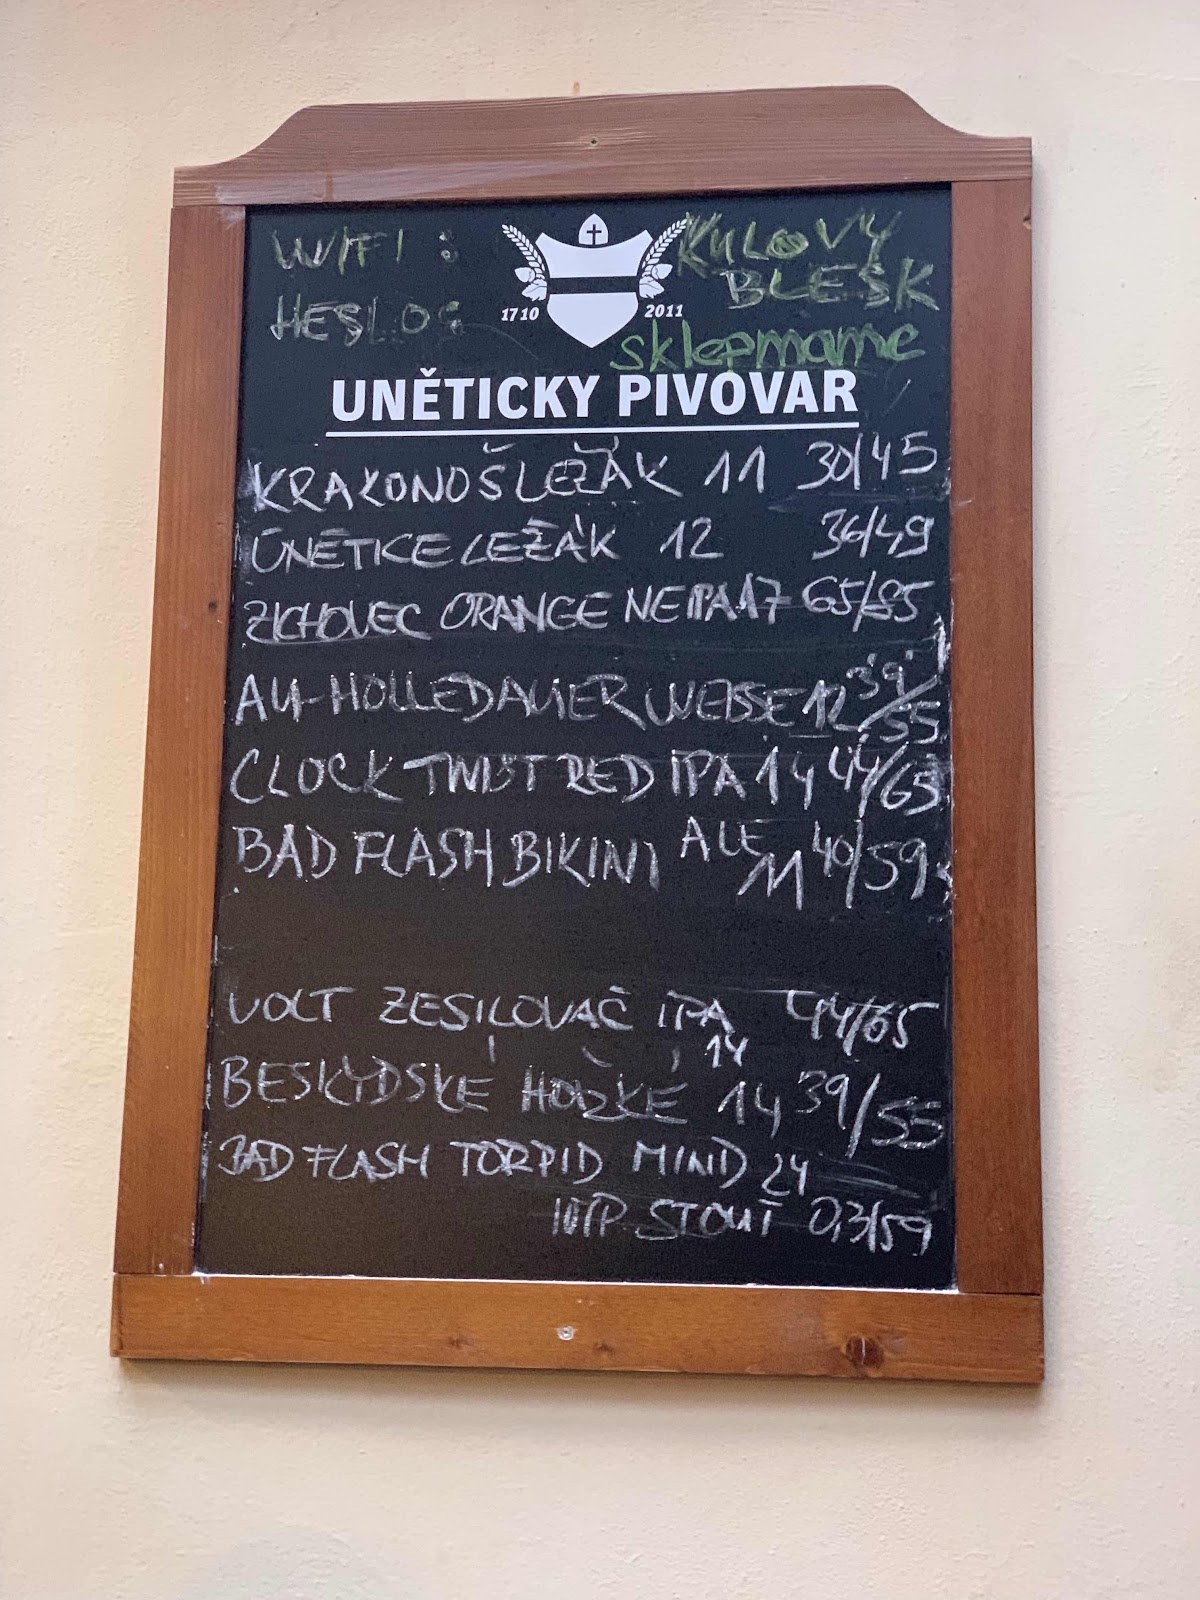 WIFI : KULOVÝ
BLESK
HESLO: sklepmame
1710 2011
UNĚTICKÝ PIVOVAR
KRAKONOŠ LEŽÁK 11 30/45
ÚNĚTICE LEŽÁK 12 36/49
ZICHOVEC ORANGE NEIPA 17 65/85
AU-HOLLEDAUER WEISSE 12 39/55
CLOCK TWIST RED IPA 14 44/65
BAD FLASH BIKINI ALE 11 40/59
VOLT ZESILOVAČ IPA 14 44/65
BESKYDSKÉ HOŘKÉ 14 39/55
BAD FLASH TORPID MIND 24
IMP. STOUT 0,3/59